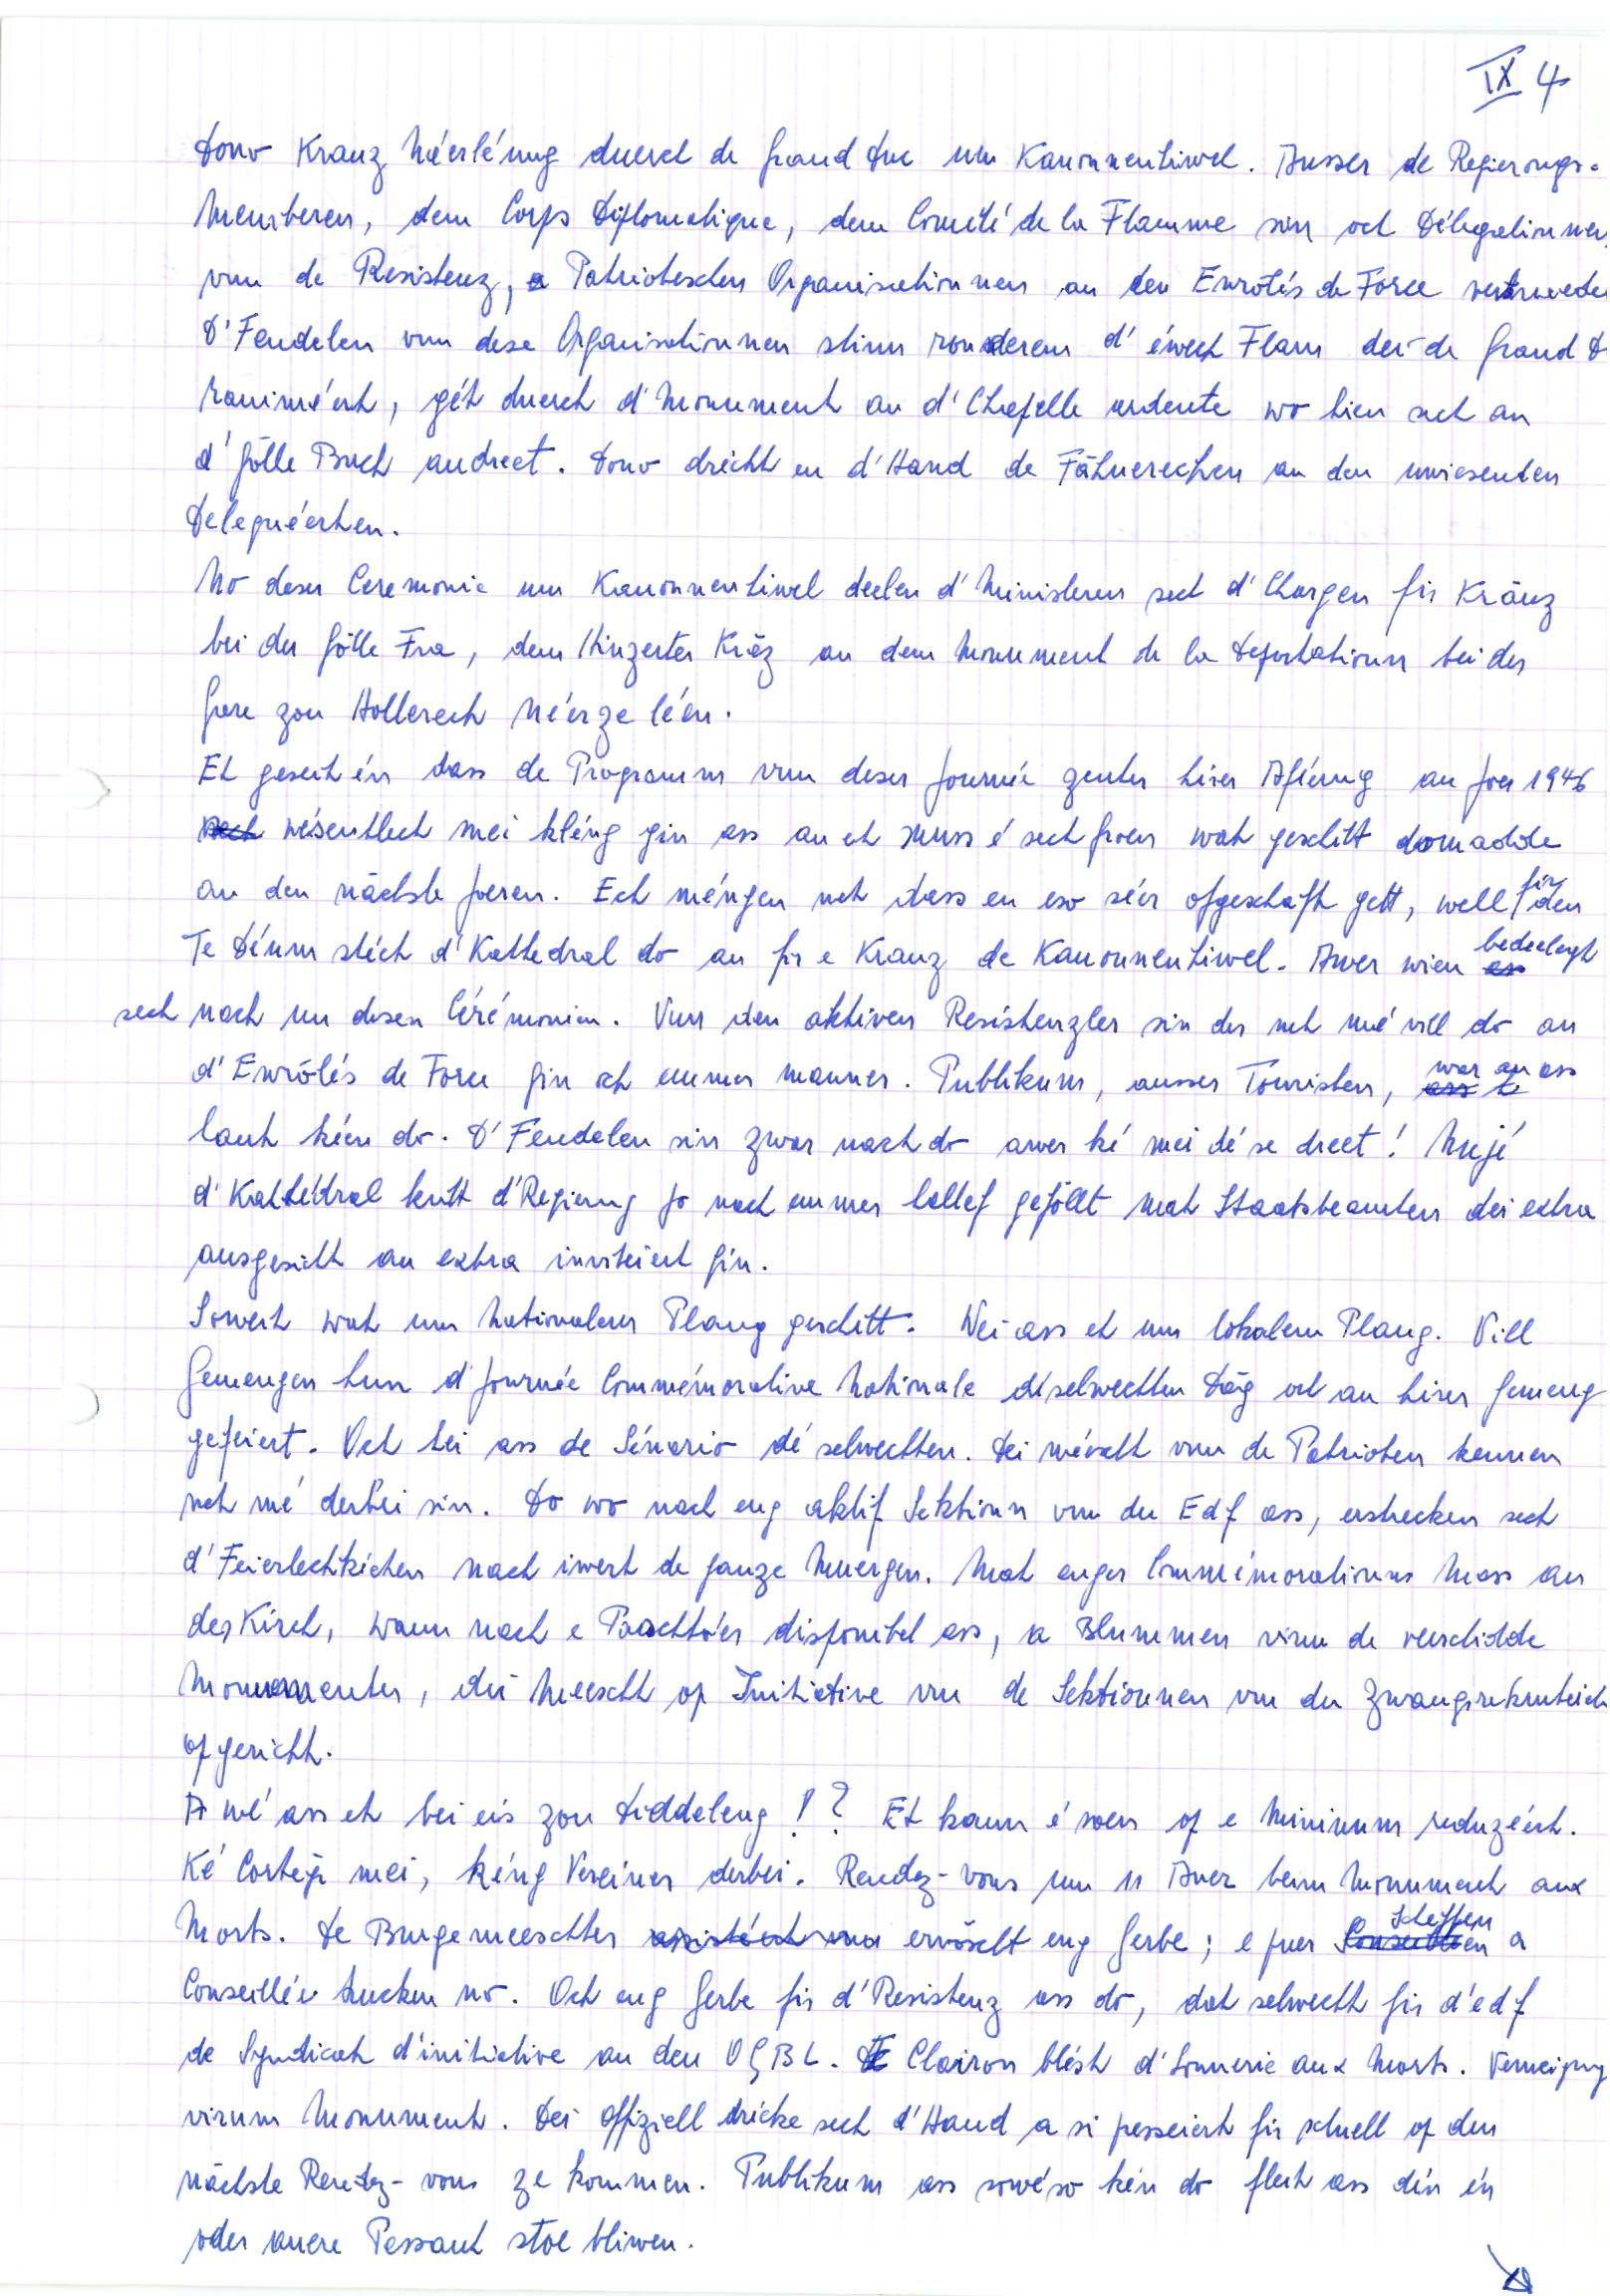 IX 4
Dono Kranz Néerléung duerch de Grand Duc um Kanounenhiwel. Ausser de Regierungs-
Memberen, dem Corps Diplomatique, dem Comité de la Flamme sin och Délegatiounen
vun de Resistenz, a Patrioteschen Organisatiounen an den Enrôlés de Force vertrueden
D'Fendelen vun dese Organisatiounen stinn ronderem d'éiwech Flam déi de Grand D
raniméert, gét duerch d'Monument an d'Chapelle ardente wo hien sech an
d'gölle Buch andreet. Dono drécht en d'Hand de Fähnerechen an den unwiesenden
Deleguéerten.
No deser Ceremonie um Kanounenhiwel deelen d'Ministeren sech d'Chargen fir Kränz
bei der gölle Fra, dem Hinzerter Kräz an dem Monument de la Deportatioun bei der
Gare zou Hollerech néerzeléen.
Et geseit én dass de Programm vun deser Journée zenter hirer Aféirung am Joer 1946
wésentlech méi kléng gin ass an et muss é sech froen wat geschitt domadde
an den nächste Joeren. Ech méngen net dass en eso séier ofgeschaft gett, well fir den
Te Déum stéet d'Kathedral do an fir e Kranz de Kanounenhiwel. Awer wien bedeelegt
sech nach un desen Cérémonien. Vun den aktiven Resistenzler sin der net mé vill do an
d'Enrôlés de Force gin och emmer manner. Publikum, ausser Touristen, war an ass
laut kéen do. D'Fendelen sin zwar nach do awer ké méi dé se dreet! Nujé
d'Kathédral kritt d'Regierung jo nach emmer hallef gefëllt mat Staatsbeamten déi extra
ausgesicht an extra invitéiert gin.
Soweit wat um Nationalem Plang geschitt. Wéi ass et um lokalem Plang. Vill
Gemengen hun d'Journée Commémorative Nationale deselwechten Dág och an hirer Gemeng
gefeiert. Och hei ass de Sénario dé selwechten. Déi méescht vun de Patrioten kennen
net mé derbei sin. Do wo nach eng aktif Sektioun vun der Edf ass, erstrecken sech
d'Feierlechkeeten nach iwert de ganze Muergen. Mat enger Commémoratiouns Mass an
der Kirch, wann nach e Paschtóer disponibel ass, a Blummen virun de verschidde
Monumenter, déi meescht op Initiative vun de Sektiounen vun der Zwangsrekrutéiert
opgericht.
A wé ass et bei eis zou Diddeleng!? Et kann é soen op e Minimum reduzéert.
Ké Cortège méi, kéng Vereiner derbei. Rendez-vous um 11 Auer beim Monument aux
Morts. De Burgemeeschter eröselt eng Gerbe; e puer Scheffen a
Conseillée kucken no. Och eng Gerbe fir d'Resistenz ass do, dat selwecht fir d'edf
de Syndicat d'initiative an den OGBL. De Clairon bléest d'Sonnerie aux Morts. Verneigung
virum Monument. Déi offiziell dricke sech d'Hand a si presséiert fir schnell op den
nächste Rendez-vous ze kommen. Publikum ass sowéso kén do flecht ass dén én
oder anere Passant stoe bliwen.